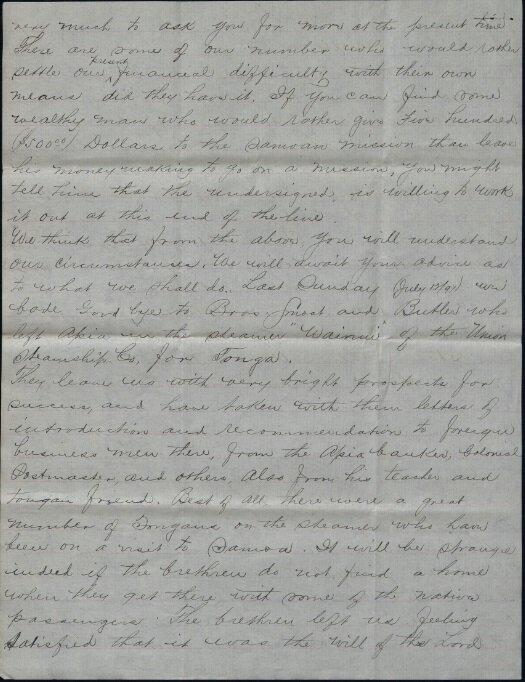 very much to ask you for more at the present time
There are some of our number who would rather
settle our present financial difficulty with their own
means did they have it. If you can find some
wealthy man who would rather give Five hundred
($500.00) Dollars to the Samoan mission than leave
his money making to go on a mission, you might
tell him that the undersigned is willing to work
it out at this end of the line.
We think that from the above you will understand
our circumstances. We will await your advice as
to what we shall do. Last Sunday July we
bade Good bye to Bros. Smoot and Butler who
left Apia in the steamer "Wainui" of the Union
Steamship Co. for Tonga.
They leave us with very bright prospects for
success, and have taken with them letters of
introduction and recommendation to foreign
business men there, from the Apia banker, Colonial
Postmaster, and others, also from his teacher and
tongan friend. Best of all there were a great
number of Tongans on the steamer who have
been on a visit to Samoa. It will be strange
indeed if the brethren do not find a home
when they get there with some of the native
passengers. The brethren left us feeling
satisfied that it was the will of the Lord